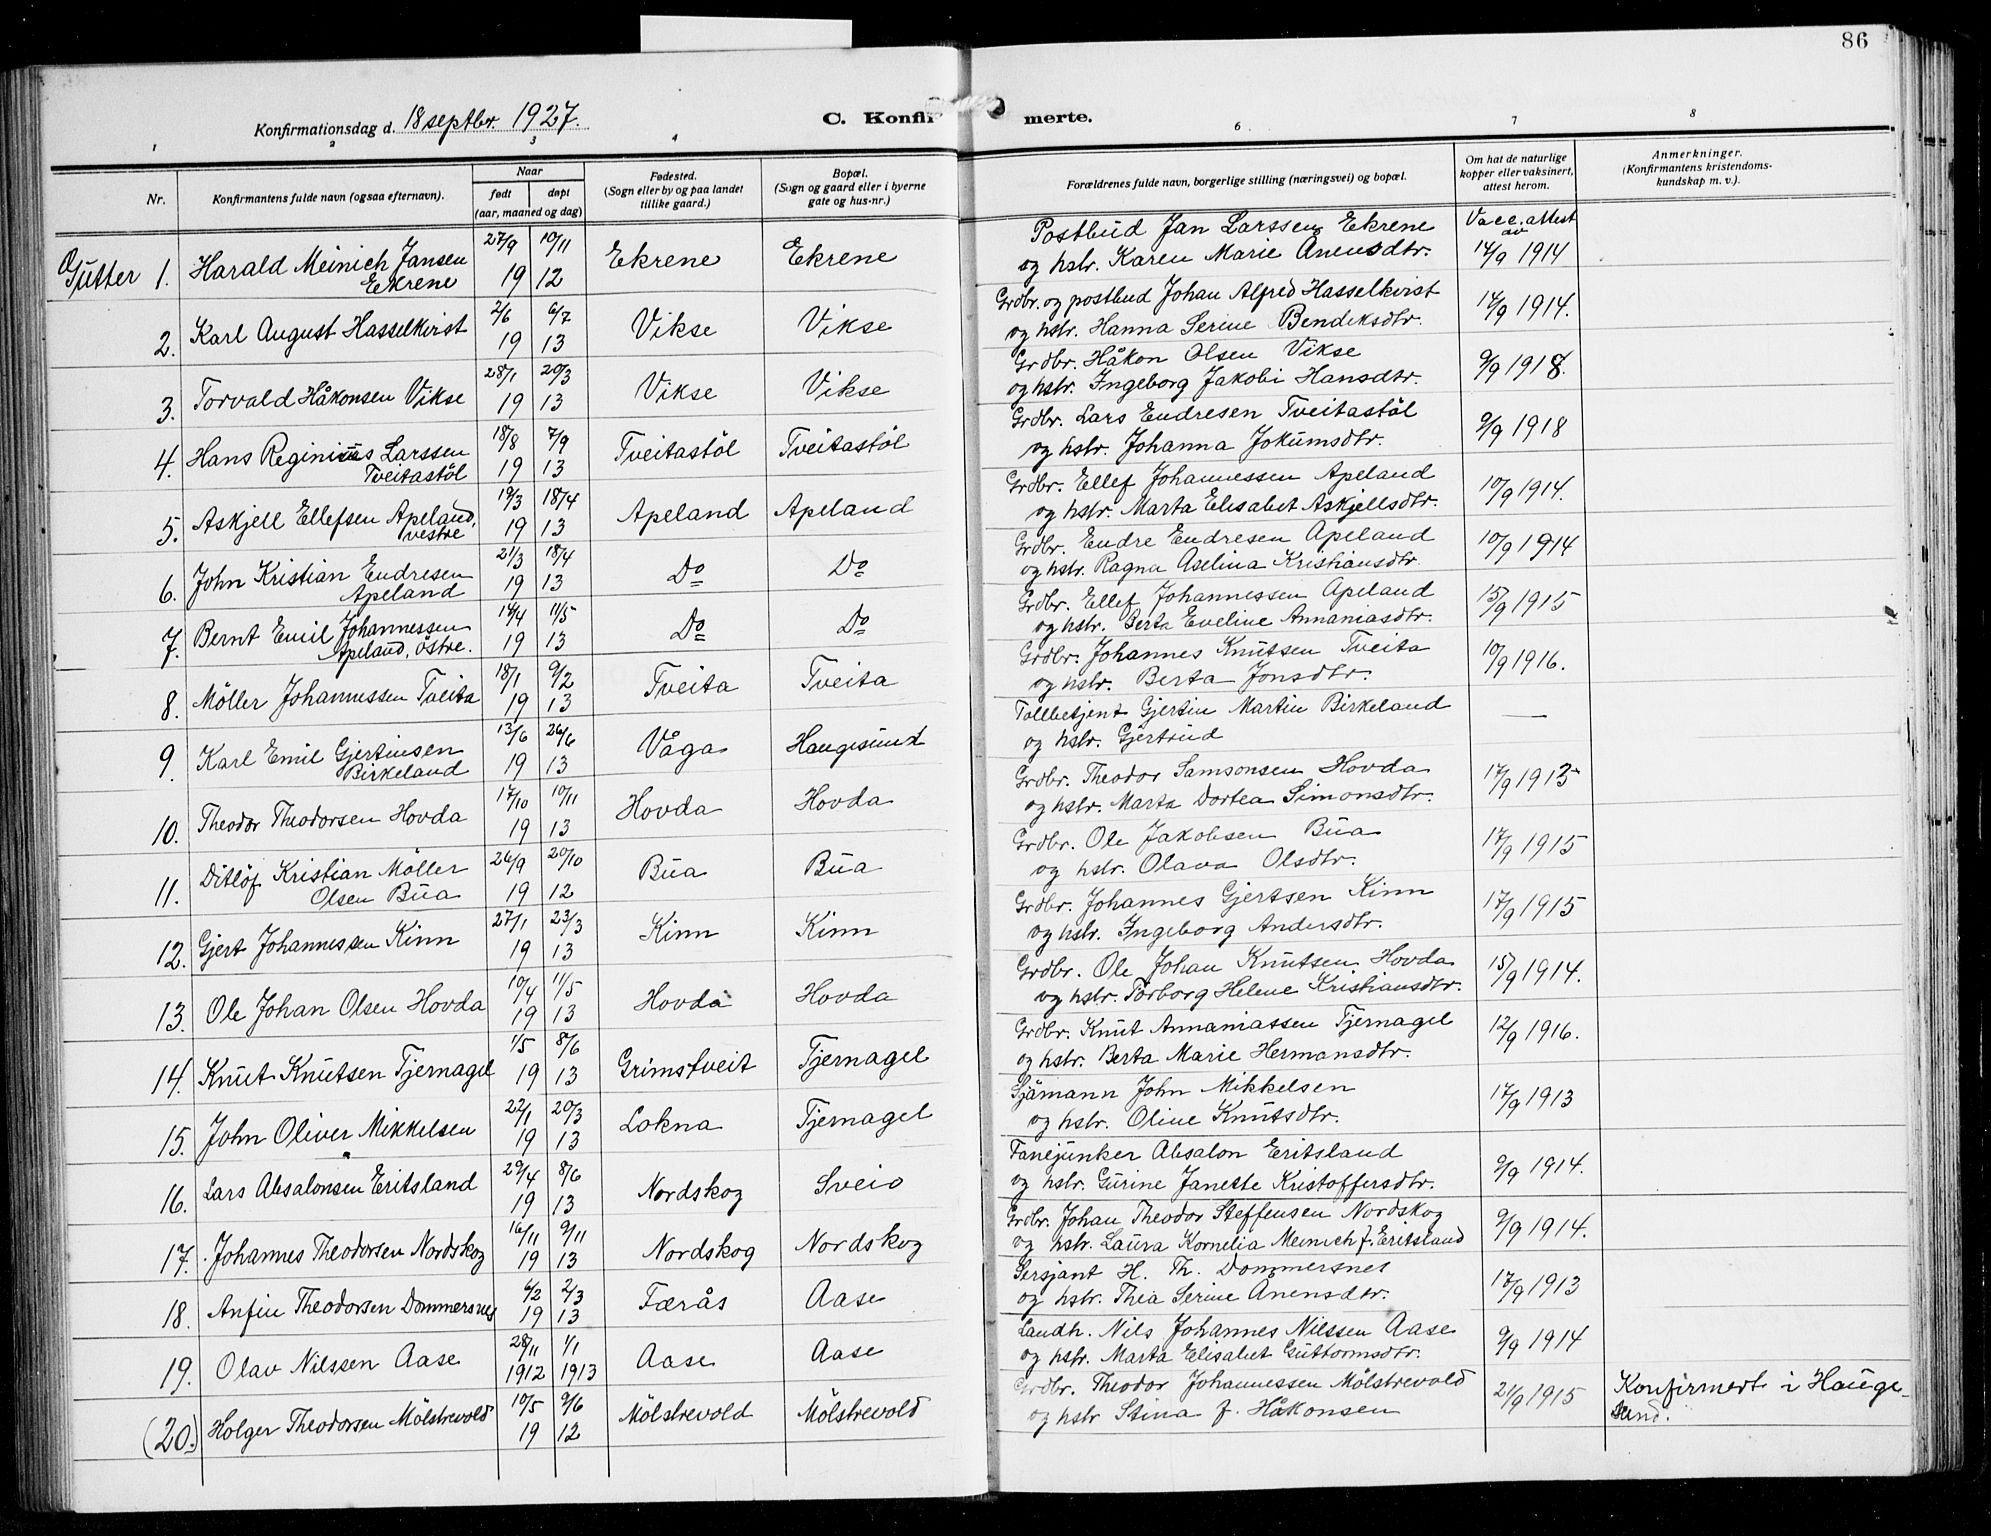 86
Konfirmationsdag d. 18 septbr. 1927.
C. Konfir merte.
1 2 3 4 6 7 8
Nr.
Konfirmantens fulde navn (ogsaa efternavn).
Naar
født døpt
(aar, maaned og dag)
Fødested.
(Sogn eller by og paa landet
tillike gaard.)
Bopæl.
(Sogn og gaard eller i byerne
gate og hus-nr.)
Forældrenes fulde navn, borgerlige stilling (næringsvei) og bopæl.
Om hat de naturlige
kopper eller vaksinert,
attest herom.
Anmerkninger.
(Konfirmantens kristendoms-
kundskap m. v.).
Gutter 1. Harald Meinich Jansen 27/9 10/11 Ekrene Ekrene Postbud Jan Larssen Ekrene Vacc. attest av
Ekrene 19 12 og hstr. Karen Marie Ånensdtr. 14/9 1914
2. Karl August Hasselkvist 2/6 6/7 Vikse Vikse Grdbr. og postbud Johan Alfred Hasselkvist 14/9 1914.
19 13 og hstr. Hanna Serine Bendiksdtr.
3. Torvald Håkonsen Vikse 28/1 20/3 Vikse Vikse Grdbr. Håkon Olsen Vikse 9/9 1918.
19 13 og hstr. Ingeborg Jakobi Hansdtr.
4. Hans Reginius Larssen 18/8 7/9 Tveitastöl Tveitastöl Grdbr. Lars Endresen Tveitastöl 9/9 1918
Tveitastöl 19 13 og hstr. Johanna Jokumsdtr.
5. Askjell Ellefsen Apeland, 19/3 18/4 Apeland Apeland Grdbr. Ellef Johannessen Apeland 10/9 1914.
vestre 19 13 og hstr. Marta Elisabet Askjellsdtr.
6. John Kristian Endresen 21/3 18/4 Do Do Grdbr. Endre Endresen Apeland 10/9 1914
Apeland 19 13 og hstr. Ragna Aselina Kristiansdtr.
7. Bernt Emil Johannessen 14/4 11/5 Do Do Grdbr. Ellef Johannessen Apeland 15/9 1915
Apeland, östre. 19 13 og hstr. Berta Eveline Annaniasdtr.
8. Möller Johannessen Tveita 18/1 9/2 Tveita Tveita Grdbr. Johannes Knutsen Tveita 10/9 1916.
19 13 og hstr. Berta Jonsdtr.
9. Karl Emil Gjertinsen 13/6 26/6 Våga Haugesund Tollbetjent Gjertin Martin Birkeland —
Birkeland 19 13 og hstr. Gjertrud
10. Theodor Theodorsen Hovda 17/10 10/11 Hovda Hovda Grdbr. Theodor Samsonsen Hovda 17/9 1913
19 13 og hstr. Marta Dortea Simonsdtr.
11. Ditlöf Kristian Möller 26/9 20/10 Bua Bua Grdbr. Ole Jakobsen Bua 17/9 1915
Olsen Bua 19 12 og hstr. Olava Olsdtr.
12. Gjert Johannessen Kinn 27/1 23/3 Kinn Kinn Grdbr. Johannes Gjertsen Kinn 17/9 1915
19 13 og hstr. Ingeborg Andersdtr.
13. Ole Johan Olsen Hovda 10/4 11/5 Hovda Hovda Grdbr. Ole Johan Knutsen Hovda 15/9 1914.
19 13 og hstr. Torborg Helene Kristiansdtr.
14. Knut Knutsen Tjernagel 1/5 8/6 Grimstveit Tjernagel Grdbr. Knut Annaniassen Tjernagel 12/9 1916.
19 13 og hstr. Berta Marie Hermansdtr.
15. John Oliver Mikkelsen 22/1 20/3 Lokna Tjernagel Sjömann John Mikkelsen 17/9 1913
19 13 og hstr. Oline Knutsdtr.
16. Lars Absalonsen Eritsland 29/4 8/6 Nordskog Sveio Fanejunker Absalon Eritsland 9/9 1914.
19 13 og hstr. Gurine Janette Kristoffersdtr.
17. Johannes Theodorsen Nordskog 16/11 9/11 Nordskog Nordskog Grdbr. Johan Theodor Steffensen Nordskog 9/9 1914.
19 13 og hstr. Laura Kornelia Meinich f. Eritsland
18. Anfin Theodorsen Dommersnes 6/2 2/3 Færås Aase Sersjant H. Th. Dommersnes 17/9 1913
19 13 og hstr. Thea Serine Anensdtr.
19. Olav Nilssen Aase 28/11 1/1 Aase Aase Landh. Nils Johannes Nilssen Aase 9/9 1914
1912 1913 og hstr. Marta Elisabet Guttormsdtr.
(20.) Holger Theodorsen Mölstrevold 10/5 9/6 Mölstrevold Mölstrevold Grdbr. Theodor Johannessen Mölstrevold 21/9 1915 Konfirmert i Hauge-
19 12 og hstr Stina f. Håkonsen sund.